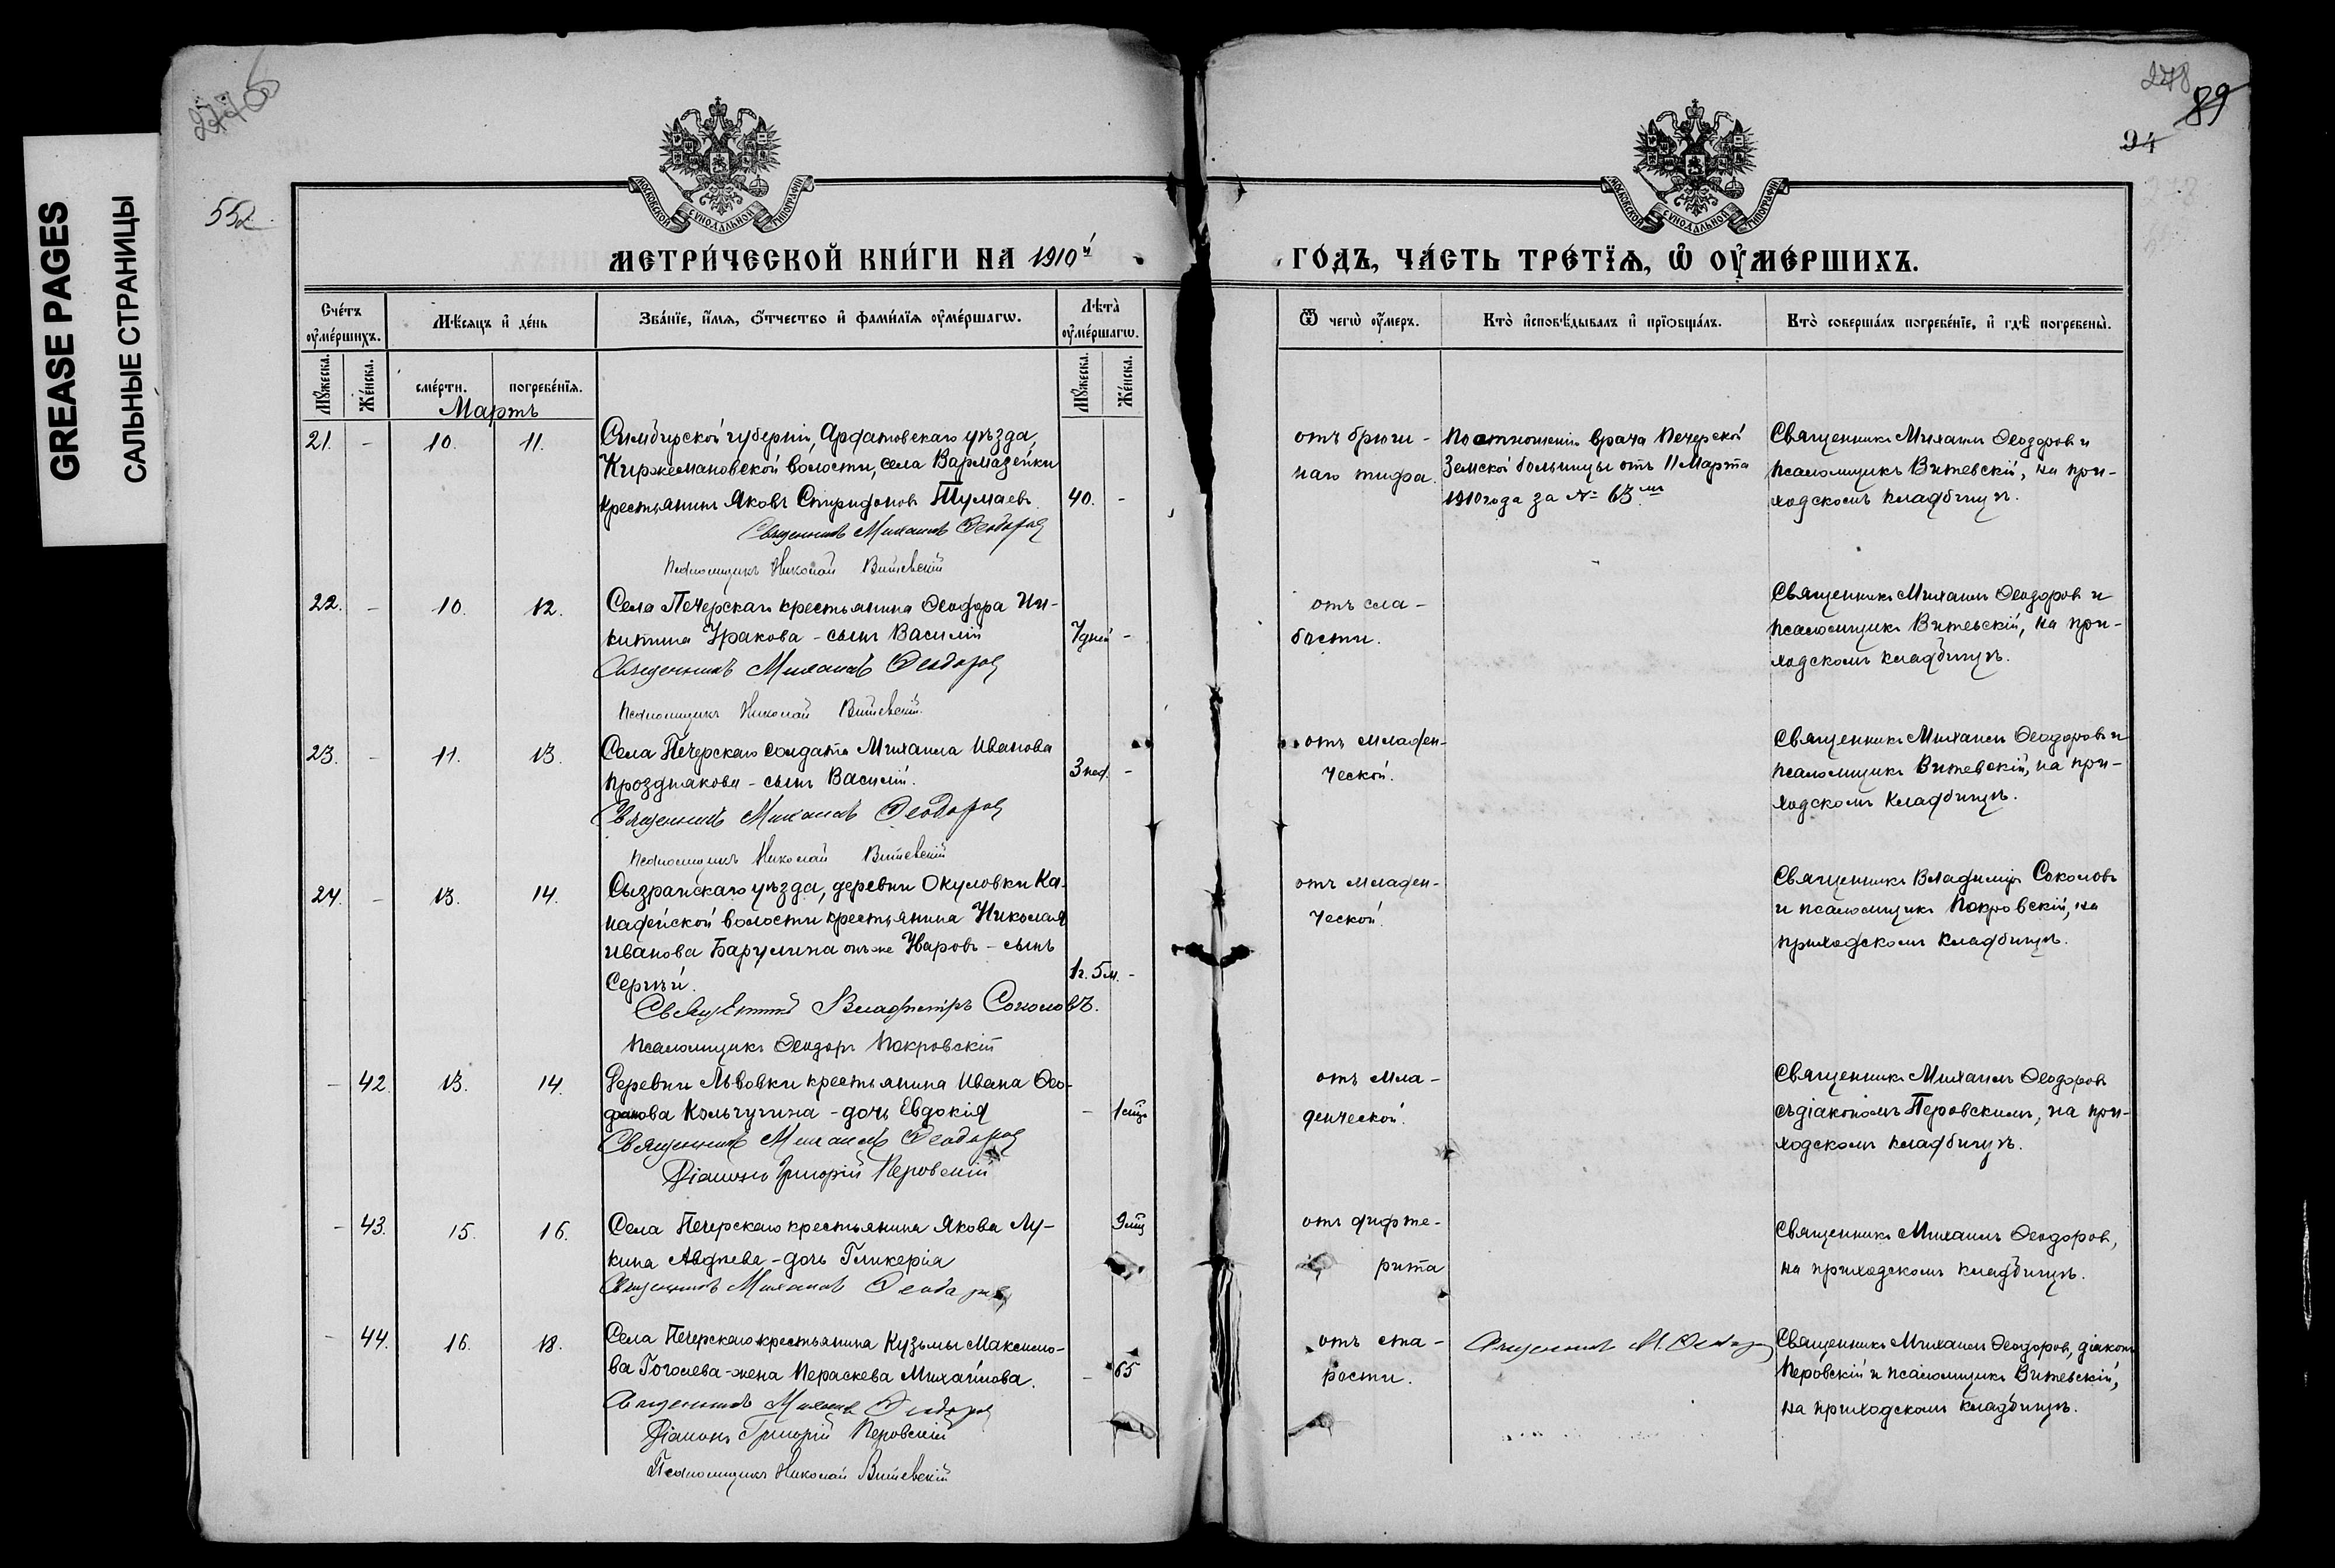 GREASE PAGES
САЛЬНЫЕ СТРАНИЦЫ
552
278
89
94
МОСКОВСКОЙ СѴНОДАЛЬНОЙ ТИПОГРАФІИ
МОСКОВСКОЙ СѴНОДАЛЬНОЙ ТИПОГРАФІИ
МЕТРИ́ЧЕСКОЙ КНИ́ГИ НА 1910й
ГО́ДЪ, ЧА́СТЬ ТРЕ́ТЇЯ, Ѿ ОУ҆МЕ́РШИХЪ.
Сче́тъ оу҆ме́ршихъ.
Мѣ́сяцъ и҆ де́нь
Зва́нїе, и҆́мя, ѻ҆́тчество и҆ фами́лїя оу҆ме́ршагѡ.
Лѣта̀ оу҆ме́ршагѡ.
Ѿ чегѡ̀ оу҆́меръ.
Кто̀ и҆сповѣ́дывалъ и҆ прїѡбща́лъ.
Кто̀ соверша́лъ погребе́нїе, и҆ гдѣ̀ погребены̀.
Мꙋ́жеска. Же́нска. сме́рти. погребе́нїя. Мꙋ́жеска. Же́нска.
Мартъ
21. - 10. 11. Симбирской губерніи, Ардатовскаго уѣзда,
Киржемановской волости, села Вармазейки
крестьянинъ Яковъ Спиридоновъ Тумаевъ. 40. -
Священникъ Михаилъ Ѳеодоровъ
Псаломщикъ Николай Витевскій
отъ брюш-
наго тифа.
По отношенію врача Печерской
Земской больницы отъ 11 Марта
1910 года за № 63.мъ
Священникъ Михаилъ Ѳеодоровъ и
псаломщикъ Витевскій, на при-
ходскомъ кладбищѣ.
22. - 10. 12. Села Печерскаго крестьянина Ѳеодора Ни-
китина Уракова - сынъ Василій 7 дней -
Священникъ Михаилъ Ѳеодоровъ
Псаломщикъ Николай Витевскій.
отъ сла-
бости.
Священникъ Михаилъ Ѳеодоровъ и
псаломщикъ Витевскій, на при-
ходскомъ кладбищѣ.
23. - 11. 13. Села Печерскаго солдата Михаила Иванова
Прозднакова - сынъ Василій. 3 нед. -
Священникъ Михаилъ Ѳеодоровъ
Псаломщикъ Николай Витевскій
отъ младен-
ческой.
Священникъ Михаилъ Ѳеодоровъ и
псаломщикъ Витевскій, на при-
ходскомъ кладбищѣ.
24. - 13. 14. Сызранскаго уѣзда, деревни Окуловки Ка-
надейской волости крестьянина Николая
Иванова Барулина онъ же Уваровъ - сынъ
Сергѣй. 1 г. 5 м. -
Священникъ Владиміръ Соколовъ.
Псаломщикъ Ѳеодоръ Покровскій
отъ младен-
ческой.
Священникъ Владиміръ Соколовъ
и псаломщикъ Покровскій, на
приходскомъ кладбищѣ.
- 42. 13. 14. Деревни Львовки крестьянина Ивана Ѳео-
фанова Кольчугина - дочь Евдокія - 1 мѣс
Священникъ Михаилъ Ѳеодоровъ
Діаконъ Григорій Перовскій
отъ мла-
денческой.
Священникъ Михаилъ Ѳеодоровъ
съ діакономъ Перовскимъ, на при-
ходскомъ кладбищѣ.
- 43. 15. 16. Села Печерскаго крестьянина Якова Лу-
кина Авдѣева - дочь Гликерія 9 мѣс
Священникъ Михаилъ Ѳеодоровъ
отъ дифте-
рита
Священникъ Михаилъ Ѳеодоровъ,
на приходскомъ кладбищѣ.
- 44. 16. 18. Села Печерскаго крестьянина Кузьмы Максимо-
ва Гоголева - жена Параскева Михайлова. - 65
Священникъ Михаилъ Ѳеодоровъ
Діаконъ Григорій Перовскій
Псаломщикъ Николай Витевскій
отъ ста-
рости.
Священникъ М. Ѳеодоровъ
Священникъ Михаилъ Ѳеодоровъ, діаконъ
Перовскій и псаломщикъ Витевскій,
на приходскомъ кладбищѣ.